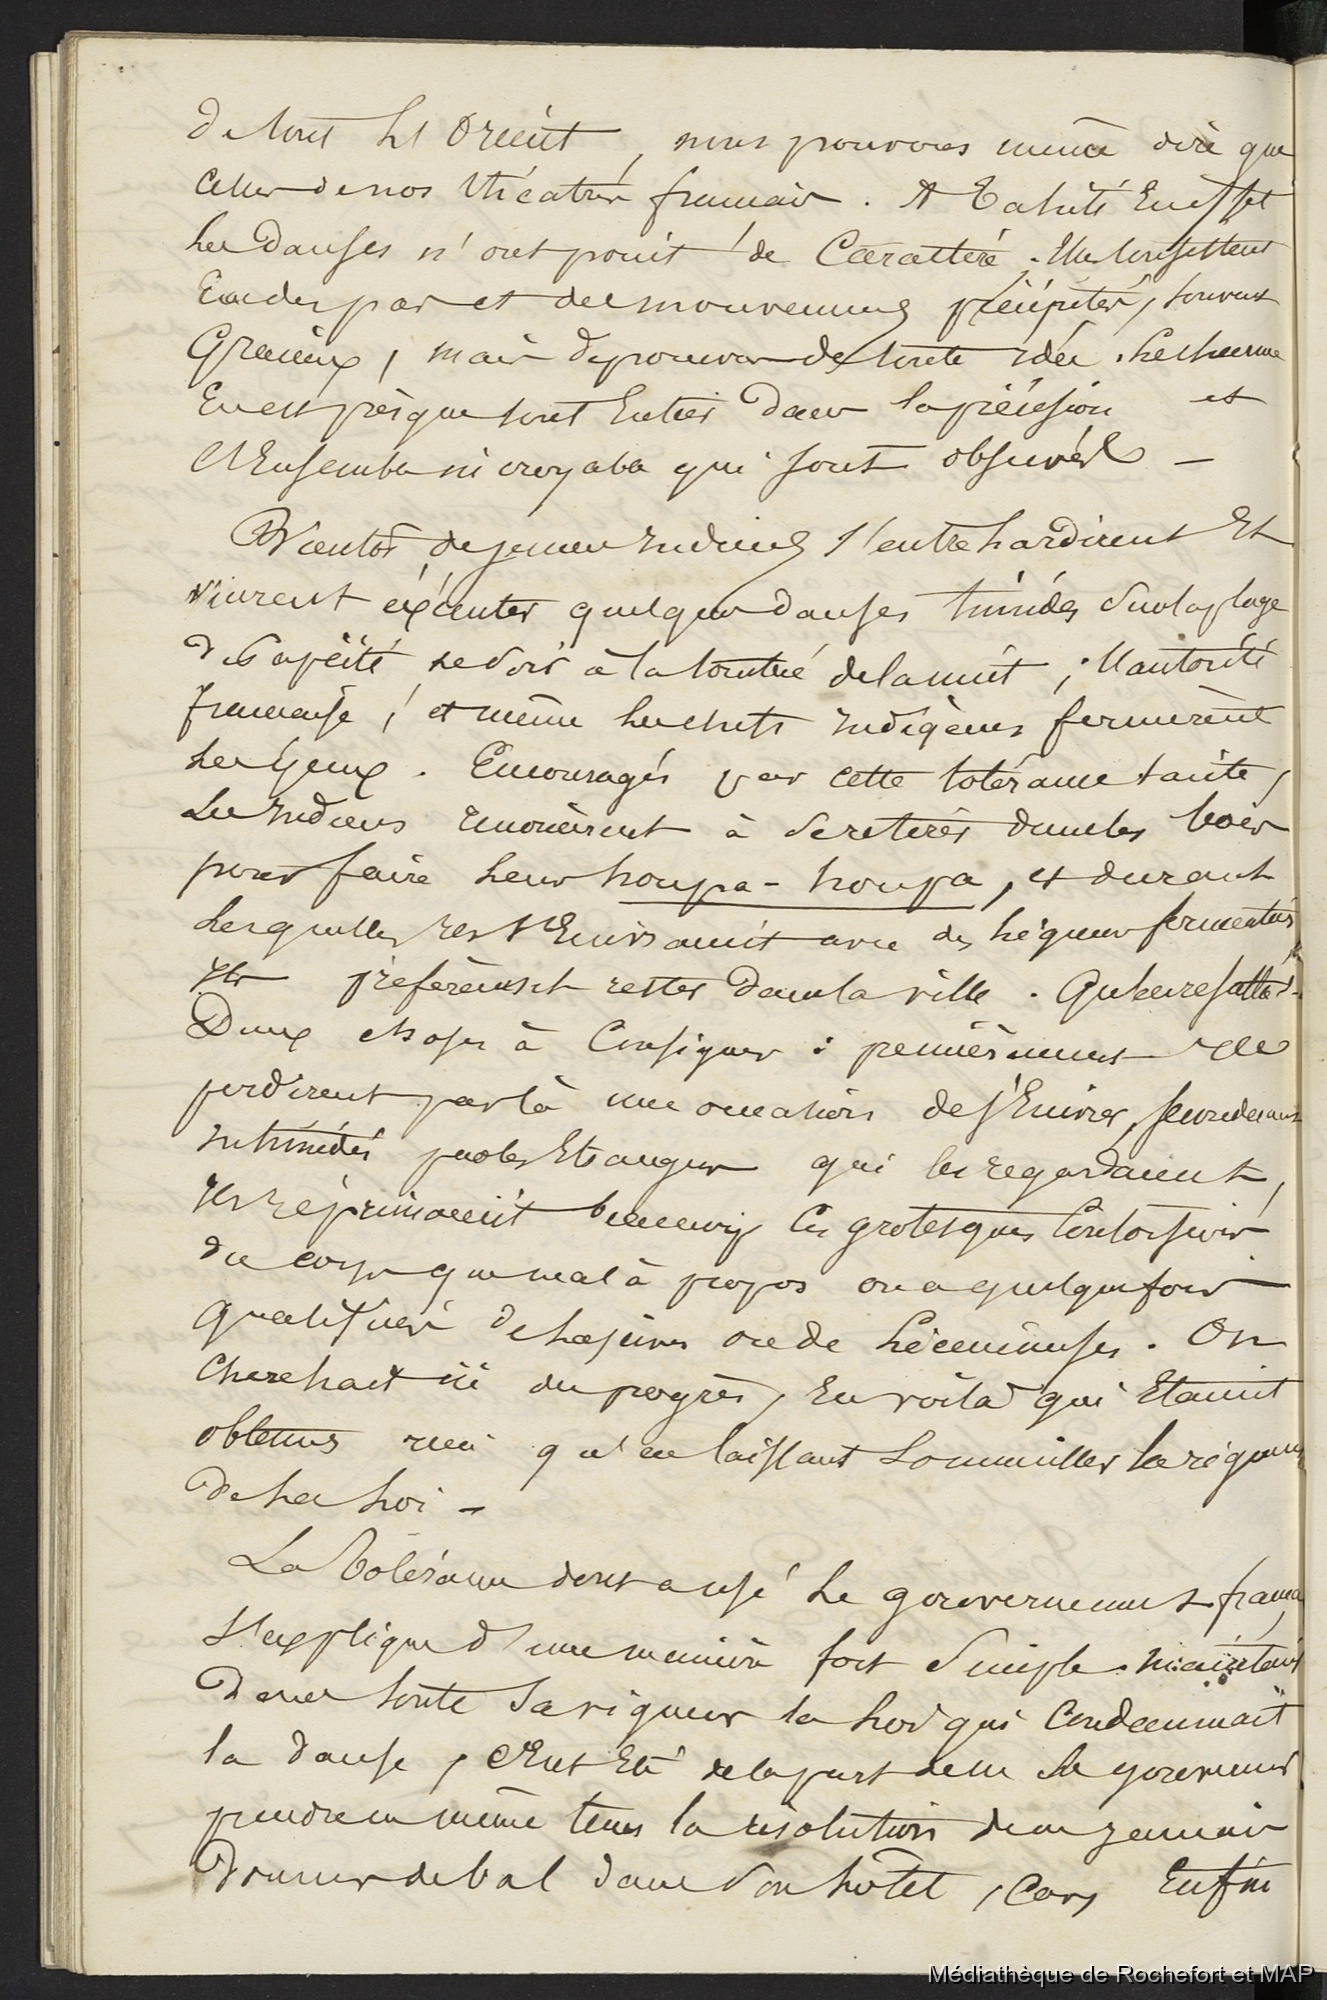 de tout l'Orient, nous pouvons même dire que
celles de nos théatres français. A Tahiti en effet
les danses n'ont point de Caractère. Elles consistent
En des pas et des mouvements précipités, souvent
Gracieux, mais dépourvus de toute idée. Le charme
En est presque tout Entier dans la précision et
l'Ensemble incroyable qui sont observés —
Bientôt de jeunes Indiens s'entrehardirent Et
vinrent éxécuter quelques danses timides sur la plage
de Papéïté le soir à la tombée de la nuit ; l'autorité
française, et même les chefs indigènes fermèrent
les yeux. Encouragés par cette tolérance tacite,
les Indiens renoncèrent à se retirer dans les bois
pour faire leur houpa-houpa, et durant
lesquelles ils s'Enivraient avec des liqueurs fermentées
Ils préférèrent rester dans la ville. Qu'en résulta-t-il
Deux choses à Consigner : premièrement ils
perdirent par là une occasion de s'Enivrer, secondement
intimidés par les Etrangers qui les regardaient,
Ils réprimaient beaucoup les grotesques Contorsions
du corps que mal à propos on a quelquefois
qualifiées de lascives ou de licencieuses. On
Cherchait ici du progrès, En voilà qui Etaient
obtenus rien qu'en laissant sommeiller la rigueur
de la loi —
La Tolérance dont a usé le gouvernement français
s'explique d'une manière fort simple. maintenir
Dans toute sa rigueur la loi qui Condamnait
la danse, c'Eut Eté de la part de le gouverneur
prendre en même tems la résolution de ne jamais
Donner de bal dans son hôtel, Car, Enfin
Médiathèque de Rochefort et MAP